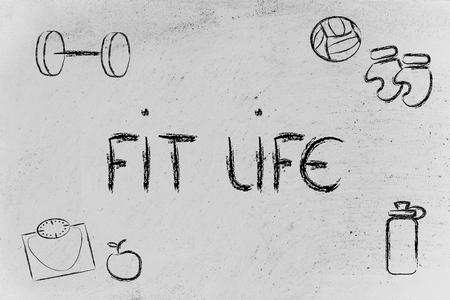 FiT LiFE